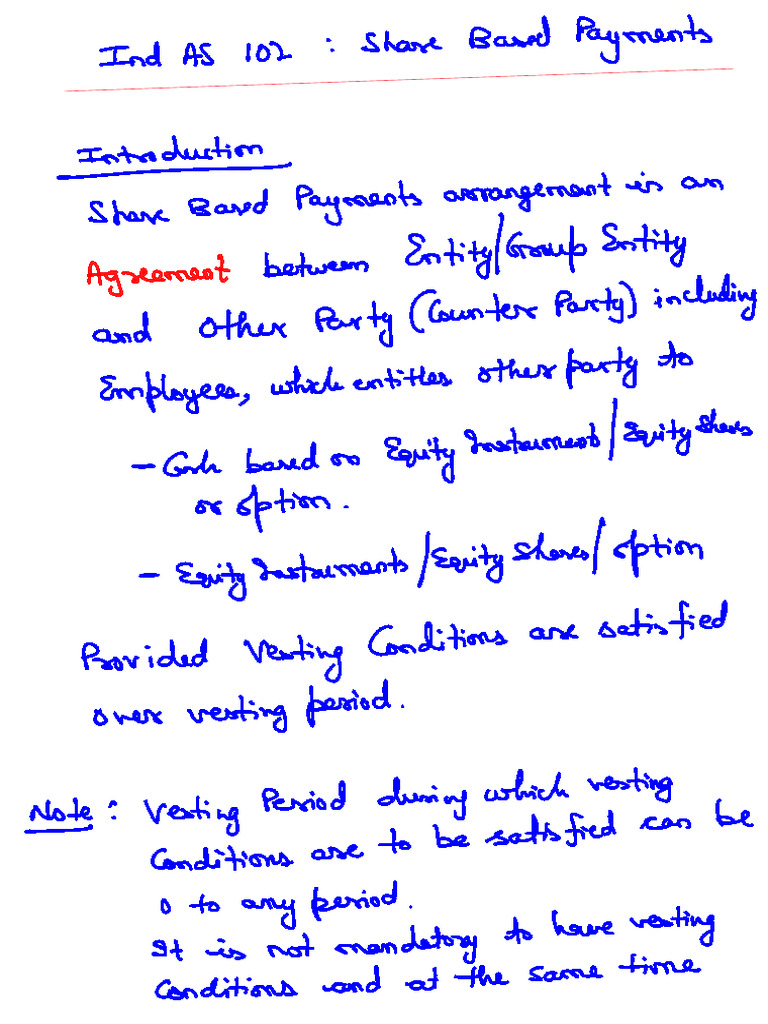 Ind AS 102 : Share Based Payments
Introduction
Share Based Payments arrangement is an
Agreement between Entity/Group Entity
and Other Party (Counter Party) including
Employees, which entitles other party to
- Cash based on Equity Instrument/Equity Shares
or option.
- Equity Instruments/Equity Shares/option
Provided Vesting Conditions are satisfied
over vesting period.
Note : Vesting Period during which vesting
Conditions are to be satisfied can be
0 to any period.
It is not mandatory to have vesting
Conditions and at the same time